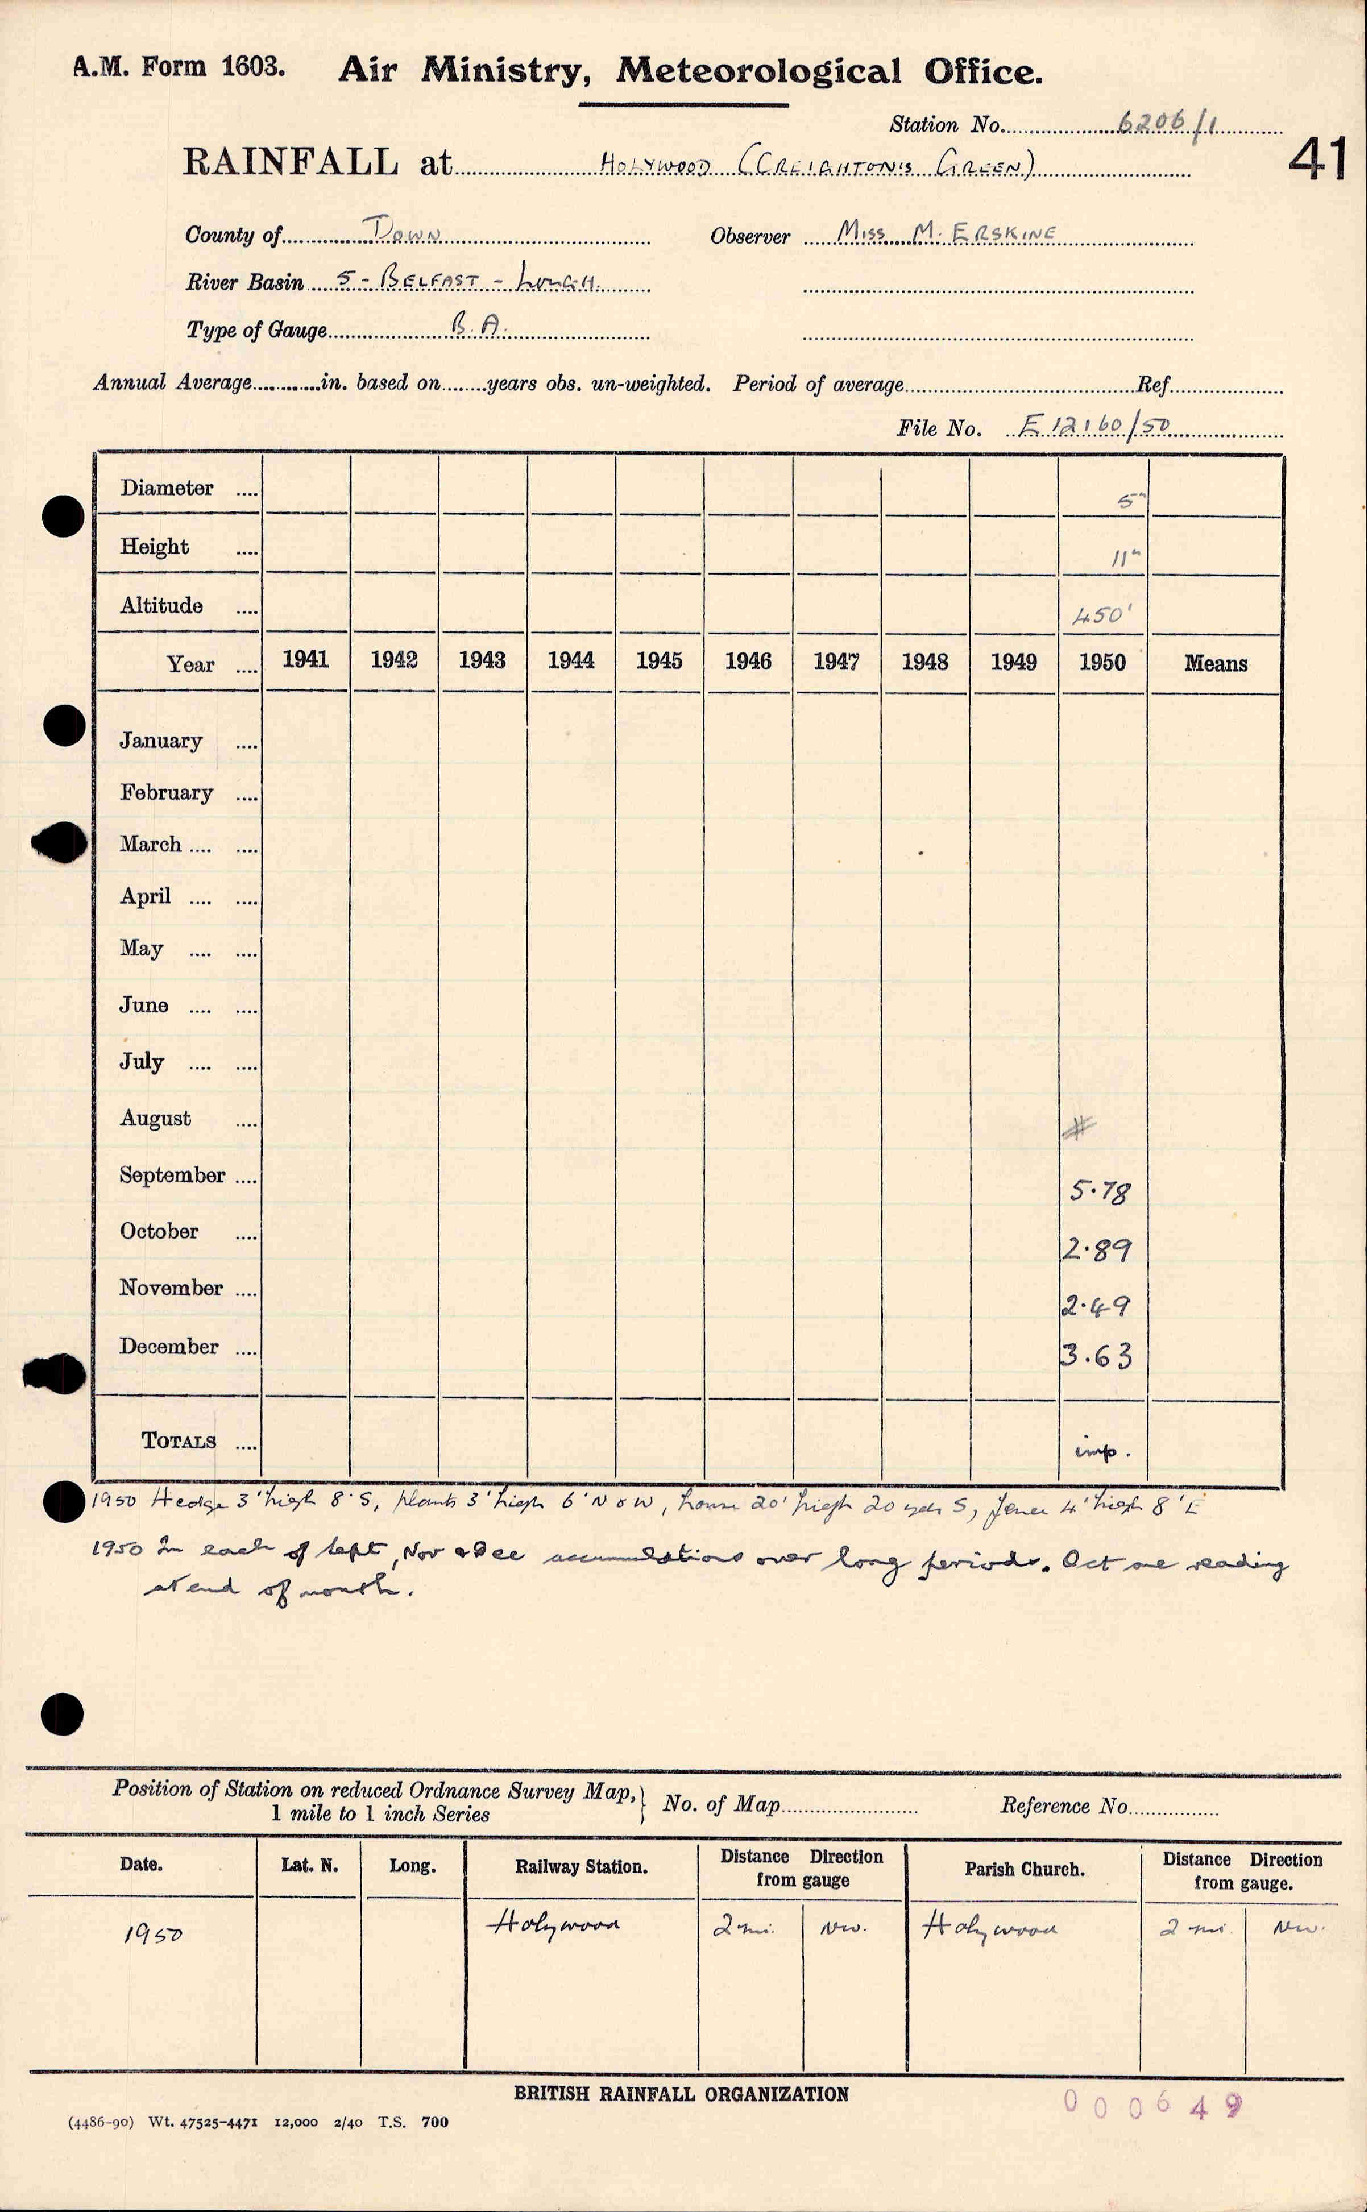 A.M. Form 1603. Air Ministry, Meteorological Office.
Station No. 6206/1
41
RAINFALL at HOLYWOOD (CREIGHTON'S GREEN)
County of DOWN Observer MISS M. ERSKINE
River Basin 5 - BELFAST - LOUGH.
Type of Gauge B.A.
Annual Average in. based on years obs. un-weighted. Period of average Ref.
File No. E 12160/50
Diameter 5"
Height 11"
Altitude 450'
Year 1941 1942 1943 1944 1945 1946 1947 1948 1949 1950 Means
January
February
March
April
May
June
July
August #
September 5.78
October 2.89
November 2.49
December 3.63
TOTALS imp.
1950 Hedge 3' high 8' S, plants 3' high 6' N & W, house 20' high 20 yds S, fence 4' high 8' E
1950 In each of Sept, Nov & Dec accumulations over long periods. Oct one reading
at end of month.
Position of Station on reduced Ordnance Survey Map, } No. of Map Reference No.
1 mile to 1 inch Series
Date. Lat. N. Long. Railway Station. Distance Direction from gauge Parish Church. Distance Direction from gauge.
1950 Holywood 2 mi. NW. Holywood 2 mi. NW.
BRITISH RAINFALL ORGANIZATION
000649
(4486-90) Wt. 47525-4471 12,000 2/40 T.S. 700